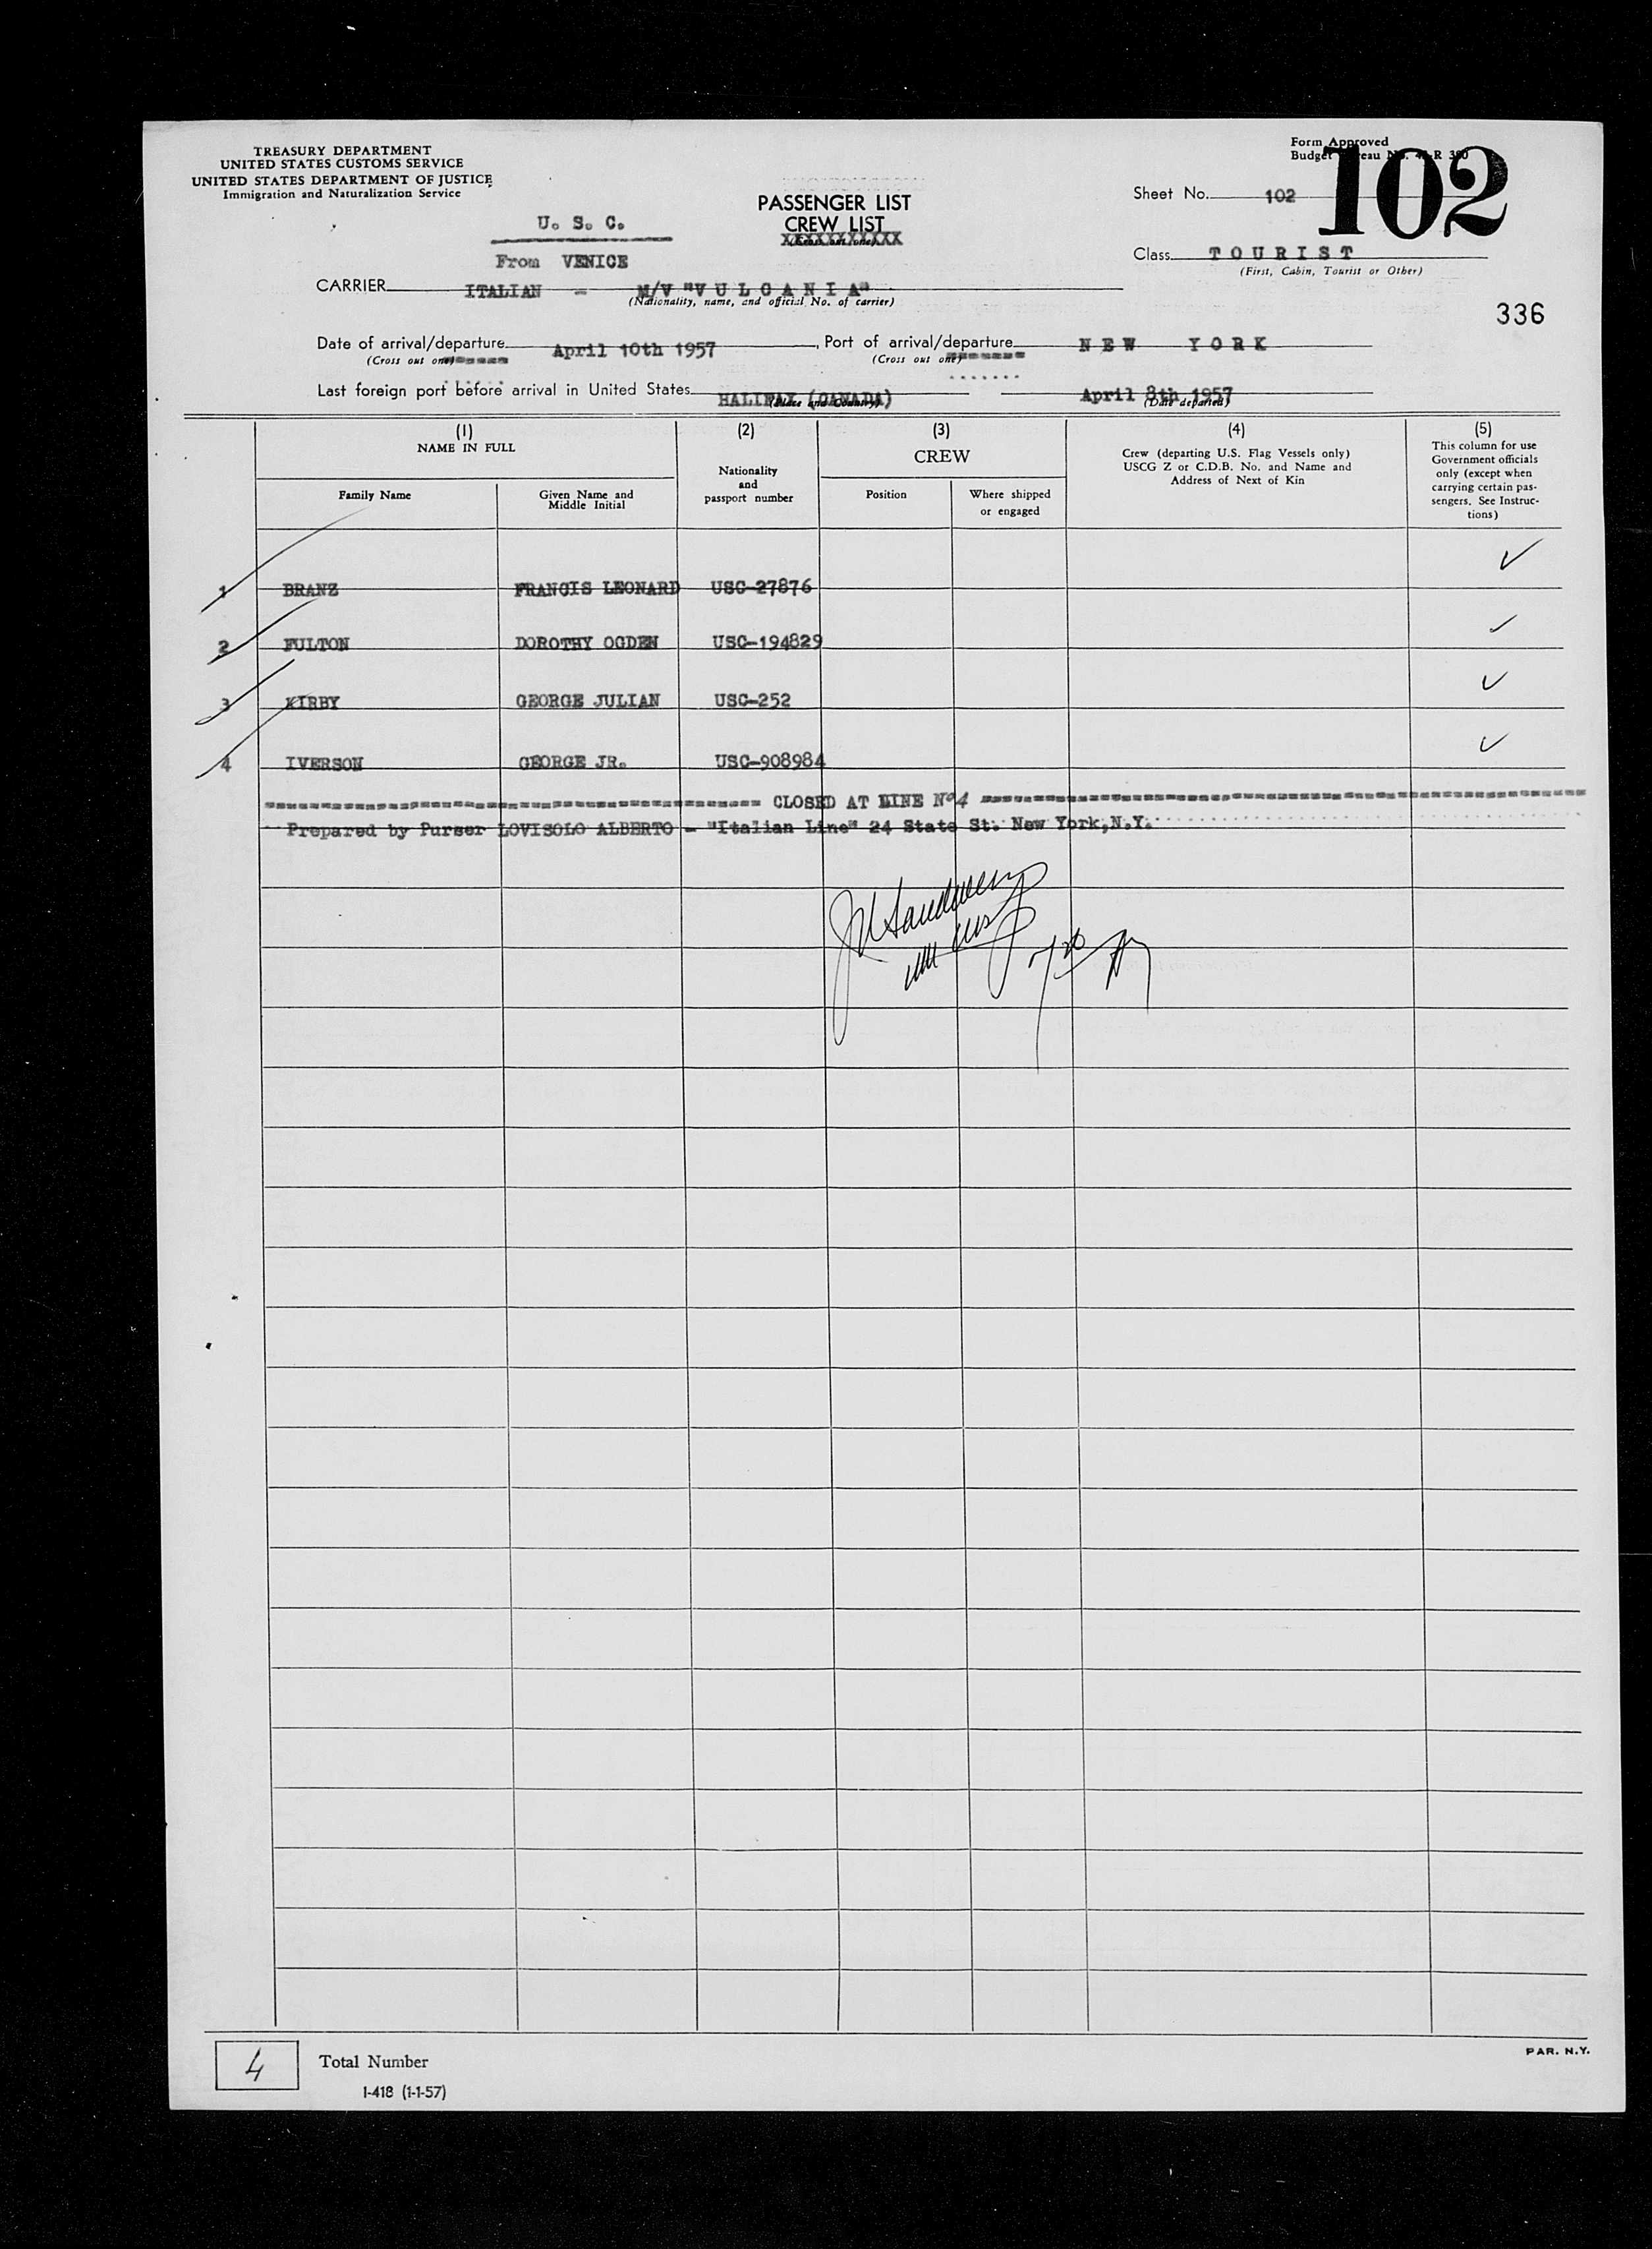 TREASURY DEPARTMENT
UNITED STATES CUSTOMS SERVICE
UNITED STATES DEPARTMENT OF JUSTICE
Immigration and Naturalization Service
Form Approved
Budget Bureau No.
102
PASSENGER LIST
CREW LIST
XXXXXXXXXXX
Sheet No. 102
U. S. C.
From VENICE
Class TOURIST
(First, Cabin, Tourist or Other)
CARRIER ITALIAN - M/V "VULCANIA"
(Nationality, name, and official No. of carrier)
336
Date of arrival/departure April 10th 1957, Port of arrival/departure NEW YORK
(Cross out one) (Cross out one)
Last foreign port before arrival in United States HALIFAX (CANADA) April 8th 1957
(Place and Country) (Date departed)
(1) NAME IN FULL
Family Name
Given Name and Middle Initial
(2)
Nationality and passport number
(3)
CREW
Position
Where shipped or engaged
(4)
Crew (departing U.S. Flag Vessels only)
USCG Z or C.D.B. No. and Name and
Address of Next of Kin
(5)
This column for use
Government officials
only (except when
carrying certain pas-
sengers. See Instruc-
tions)
1 BRANZ FRANCIS LEONARD USC-27876
2 FULTON DOROTHY OGDEN USC-194829
3 KIRBY GEORGE JULIAN USC-252
4 IVERSON GEORGE JR. USC-908984
CLOSED AT LINE Nº 4
Prepared by Purser LOVISOLO ALBERTO - "Italian Line" 24 State St. New York, N.Y.
4 Total Number
I-418 (1-1-57)
PAR. N.Y.